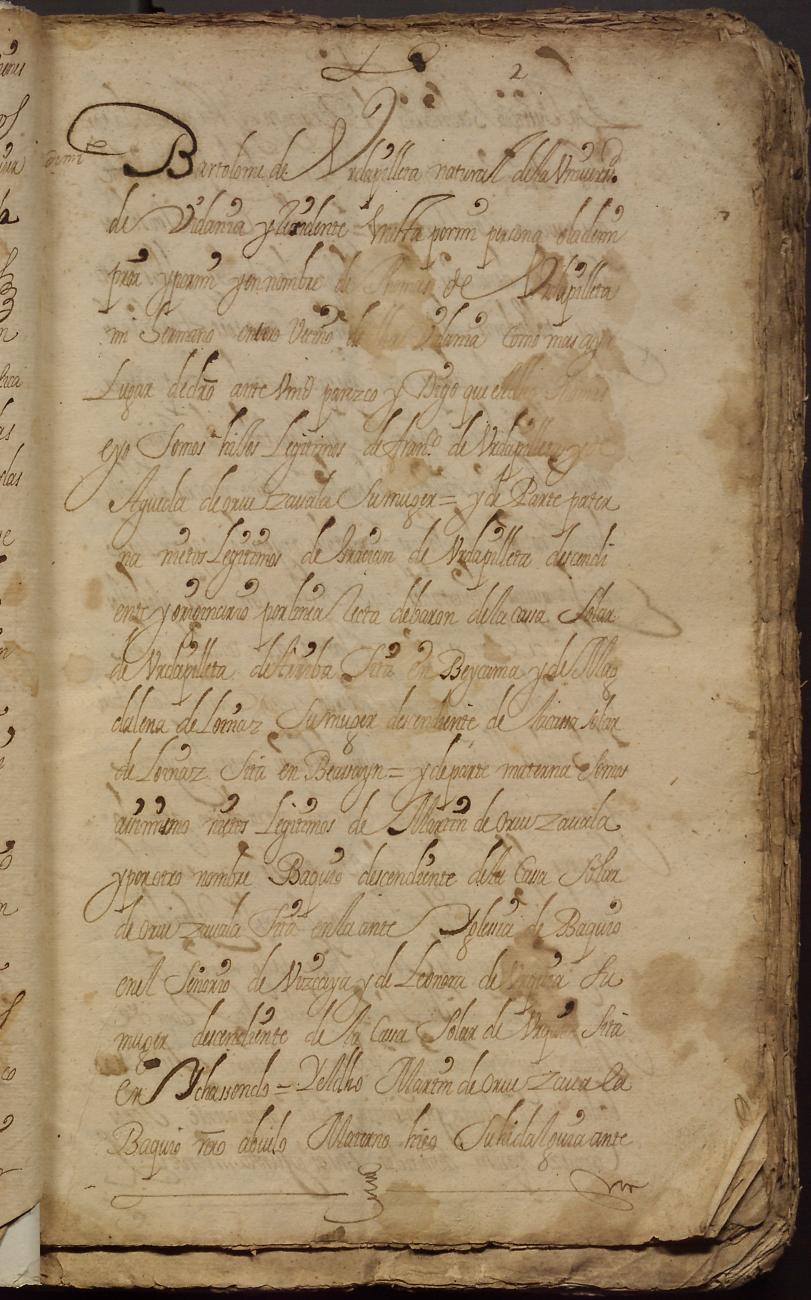 2
Bartolome de Vrdapilleta naturall de la Vniversid.
de Vidania y Residente en esta por mi persona
y por mi y en nombre de Thomas de Vrdapilleta
mi Hermano entero vecino de la Vidania Como mas aya
Lugar de dro ante Vmd parezco y Digo que el dho Thomas
e yo Somos hijos Legitimos de fran.co de Vrdapilleta y de
Agueda de orue zauala Su muger = y de Parte pater
na nietos Legitimos de Gracian de Vrdapilleta descendi
ente y originario por linia Recta de baron de la cassa Solar
de Vrdapilleta de arriba Sita en Beyçama y de Mag
dalena de Loinaz Su muger descendiente de la cassa solar
de Loinaz Sita en Beassayn = y de parte materna Somos
assimismo nietos Legitimos de Martin de orue zauala
y por otro nombre Baquio descendiente de la Cassa Solar
de orue zauala Sita en la ante Yglessia de Baquio
en ell Señorio de Vizccaya y de Leonora de Vrquiza Su
muger descendiente de la Cassa Solar de Vrquiza Sita
en Ychassondo = Y el dho Martin de orue zauala
Baquio nro abuelo Materno hizo Su hidalguia ante